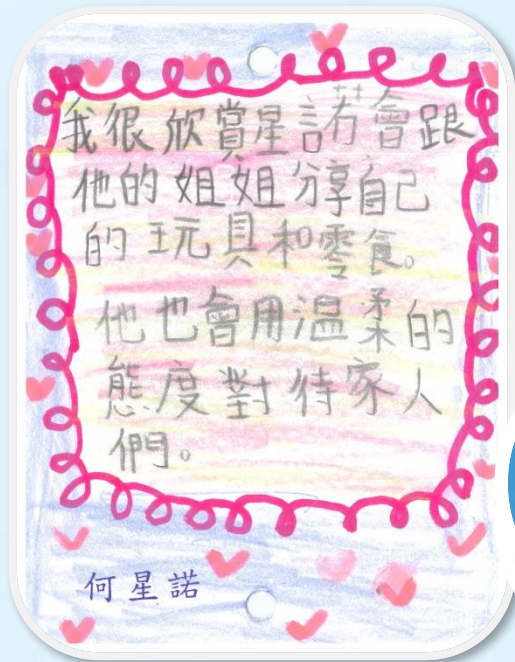 我很欣賞星諾會跟
他的姐姐分享自己
的玩具和零食。
他也會用溫柔的
態度對待家人
們。
何星諾